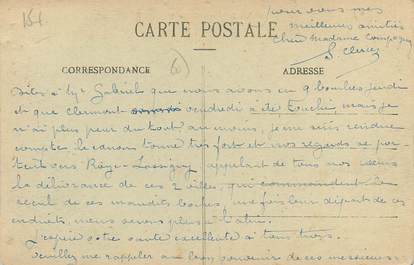 pour vous mes
meilleures amitiés
Chère Madame
CARTE POSTALE
CORRESPONDANCE
ADRESSE
Dites à Mr Gabriel que nous avons eu 9 bombes jeudi
et que Clermont vendredi a été touché mais je
n'ai plus peur du tout au moins, je me suis rendue
compte le canon tonne très fort et nos regards se por-
tent vers Roye-Lassigny appelant de tous nos
la délivrance de ces 2 villes, qui commandent le
recul de ces maudits boches, une fois leur départ de ces
endroits, nous serons plus à l'abri.
J'espère votre santé excellente à tous trois.
Veuillez me rappeler au bon souvenir de ces messieurs